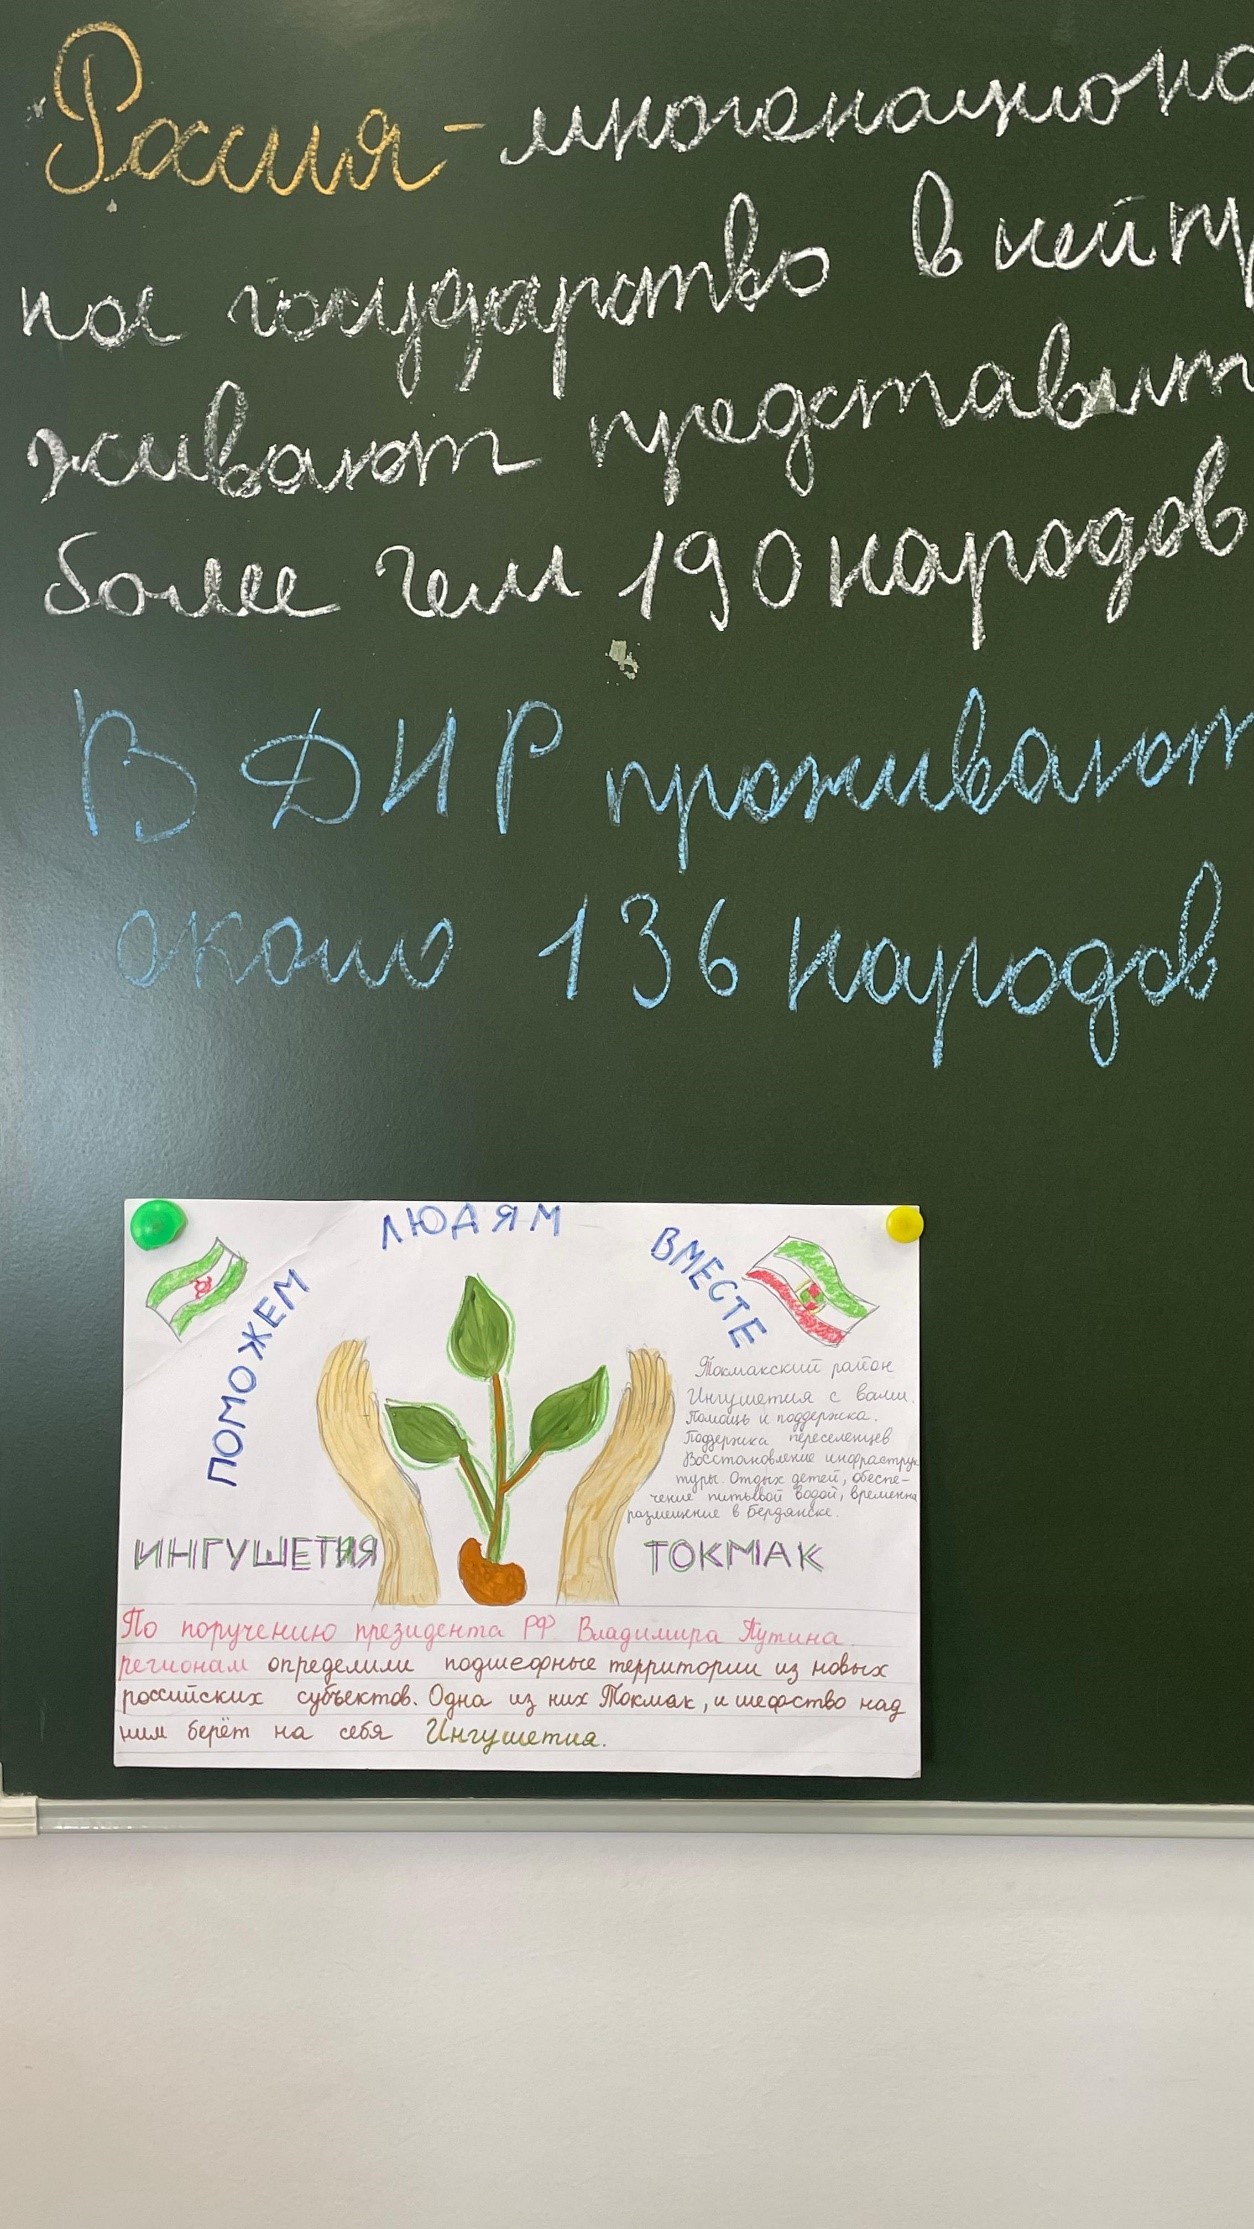 Россия - многонациона
ное государство в ней пр
живают представит
более чем 190 народов
В ДНР проживают
около 136 народов
ПОМОЖЕМ ЛЮДЯМ ВМЕСТЕ
Токмакский район
Ингушетия с вами.
Помощь и поддержка.
Поддержка переселенцев
Восстановление инфраструк
туры. Отдых детей, обеспе-
чение питьевой водой, временна
размещение в Бердянске.
ИНГУШЕТИЯ ТОКМАК
По поручению президента РФ Владимира Путина
регионам определили подшефные территории из новых
российских субъектов. Одна из них Токмак, и шефство над
ним берёт на себя Ингушетия.